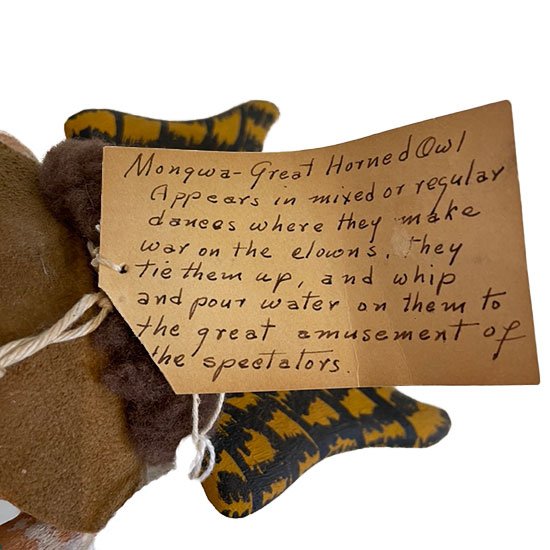 Mongwa - Great Horned Owl
Appears in mixed or regular
dances where they make
war on the clowns. They
tie them up, and whip
and pour water on them to
the great amusement of
the spectators.